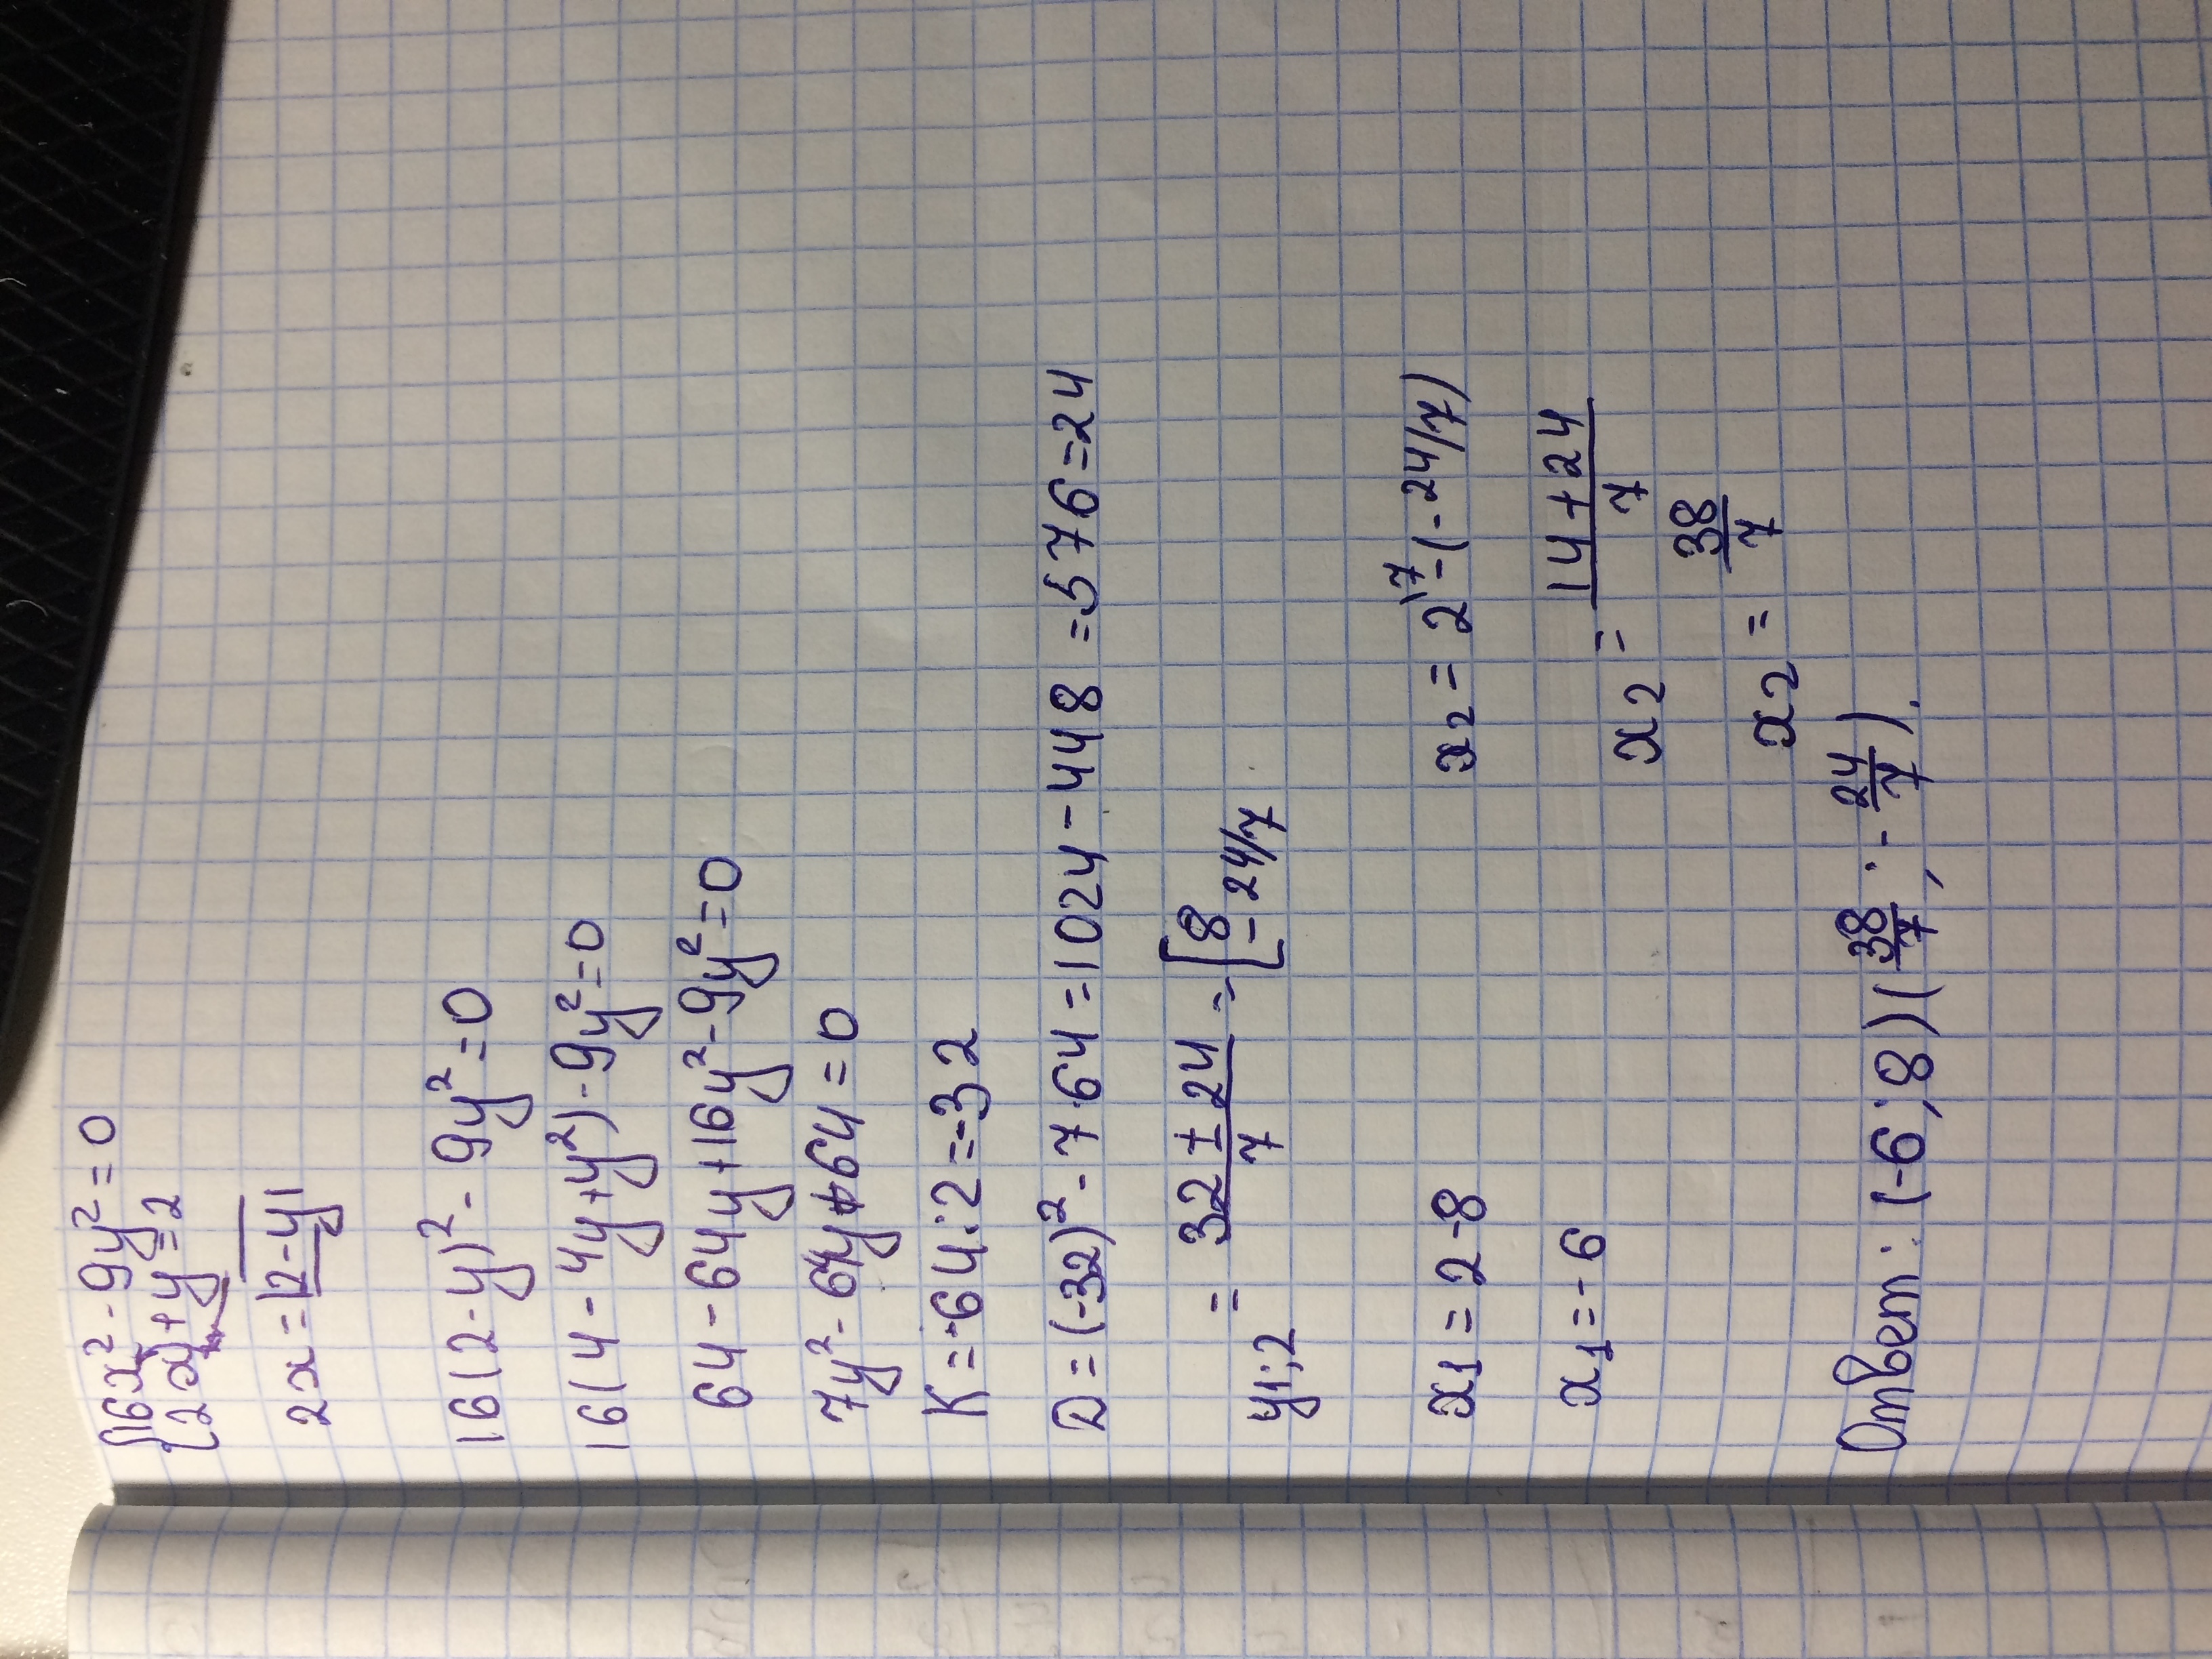 16x² - 9y² = 0
2x + y = 2
2x = |2 - y|
16(2 - y)² - 9y² = 0
16(4 - 4y + y²) - 9y² = 0
64 - 64y + 16y² - 9y² = 0
7y² - 64y + 64 = 0
K = -64 : 2 = -32
D = (-32)² - 7·64 = 1024 - 448 = 576 = 24
y1;2 = (32 ± 24)/7 = [8
- 24/7
x1 = 2 - 8 x2 = 2\7 - (-24/7)
x1 = -6 x2 = (14 + 24)/7
x2 = 38/7
Ответ: (-6; 8) (38/7; -24/7).